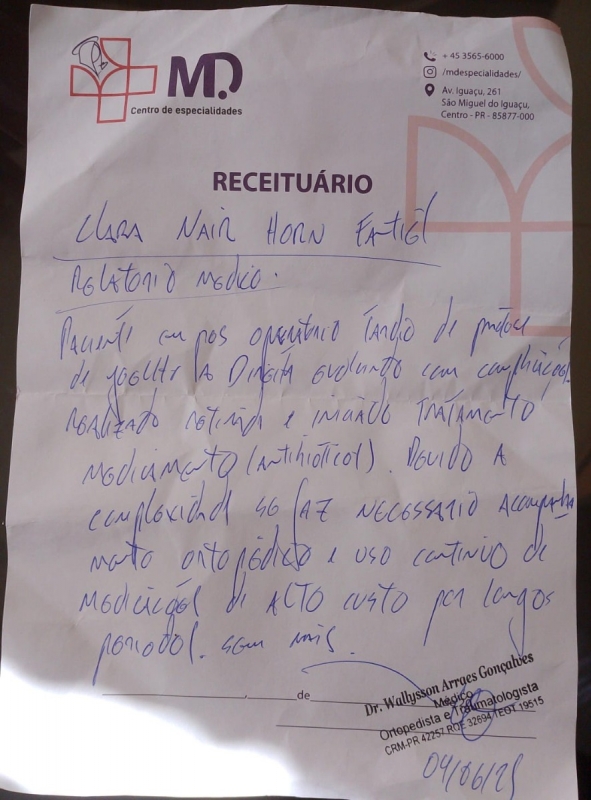 MD
Centro de especialidades
+ 45 3565-6000
/mdespecialidades/
Av. Iguaçu, 261
São Miguel do Iguaçu,
Centro - PR - 85877-000
RECEITUÁRIO
CLARA NAIR HORN
RELATORIO MEDICO.
PACIENTE em pos operatório TARDIO de protese
de joelho A DIREITA evoluindo com complicações
REALIZADO retirada e iniciado TRATAMENTO
medicamento (antibióticos). Devido A
complexidade se FAZ NECESSARIO Acompanha
mento ortopédico e uso continuo de
medicações de ALTO custo por longos
períodos. sem mais.
de
Dr. Wallysson Arraes Gonçalves
Médico
Ortopedista e Traumatologista
CRM-PR 42257 RQE 32694 TEOT 19515
04/06/25